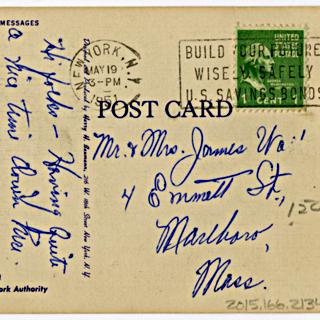 MESSAGES
NEW YORK, N.Y.
MAY 19
3-PM
BUILD YOUR FUTURE
WISELY SAFELY
U.S. SAVINGS BONDS
UNITED
1 CENT
POST CARD
Hi folks - Having Quite
a nice time down here.
Mr. & Mrs. James
4 Emmett St.,
Marlboro,
Mass.
rk Authority
2015.166.2134